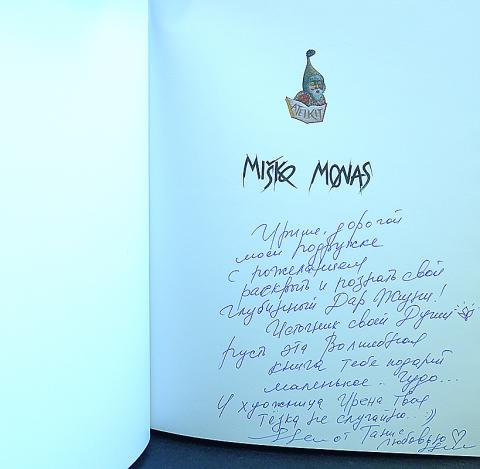 ATEIKIT
MIŠKO MONAS
Ирише, дорогой
моей подружке
с пожеланием
раскрыть и познать свой
глубинный Дар Жизни!
Источник своей Души
пусть эта Волшебная
книга тебе подарит
маленькое.. Чудо...
И художница Ирена Твоя
тёзка не случайно.. :)
от Тани с
любовью